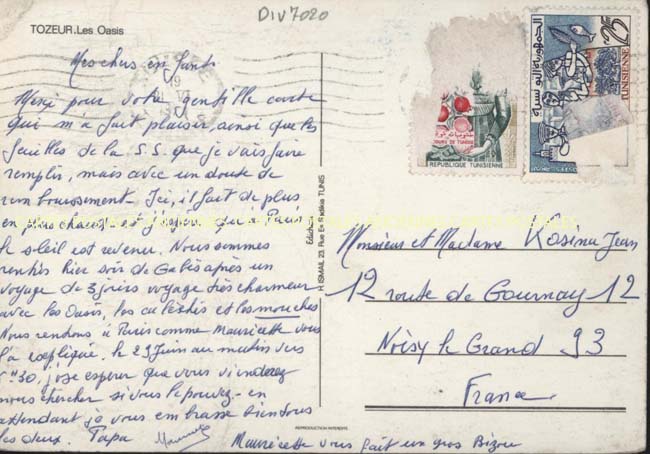 DIV7020
TOZEUR. Les Oasis
Mes chers enfants
Merci pour votre gentille carte
qui m'a fait plaisir, ainsi que les
feuilles de la S.S. que je vais faire
remplir, mais avec un doute de
remboursement. Ici, il fait de plus
en plus chaud et j'espère qu'à Paris
le soleil est revenu. Nous sommes
rentrés hier soir de Gabès après un
voyage de 3 jours voyage très charmeur
avec les Oasis, les calèches et les mouches
Nous rendons à Paris comme Mauricette vous
l'a expliqué. le 29 Juin au matin vers
30, j'ose espérer que vous viendrez
nous chercher si vous le pouvez - en
attendant je vous embrasse bien tous
les deux. Papa
Mauricette vous fait un gros Bizou
Editions
H. ISMAIL 23, Rue Es-Sadikia TUNIS
REPRODUCTION INTERDITE
REPUBLIQUE TUNISIENNE
الجمهورية التونسية
25
TUNISIENNE
Monsieur et Madame Kosina Jean
12 route de Gournay 12
Noisy le Grand 93
France